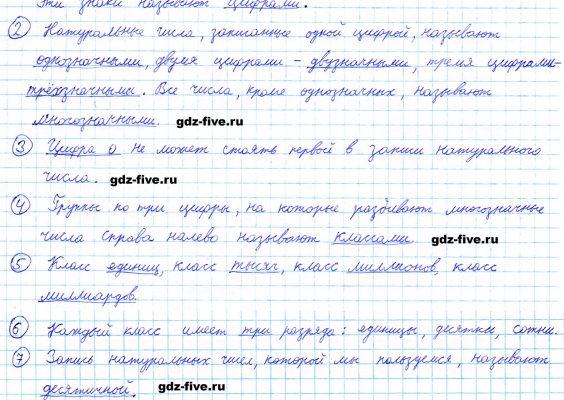 эти знаки называют цифрами.
② Натуральные числа, записанные одной цифрой, называют
однозначными, двумя цифрами – двузначными, тремя цифрами–
трёхзначными. Все числа, кроме однозначных, называют
многозначными. gdz-five.ru
③ Цифра 0 не может стоять первой в записи натурального
числа. gdz-five.ru
④ Группы по три цифры, на которые разбивают многозначные
числа справа налево называют классами. gdz-five.ru
⑤ Класс единиц, класс тысяч, класс миллионов, класс
миллиардов.
⑥ Каждый класс имеет три разряда: единицы, десятки, сотни.
⑦ Запись натуральных чисел, которой мы пользуемся, называют
десятичной. gdz-five.ru